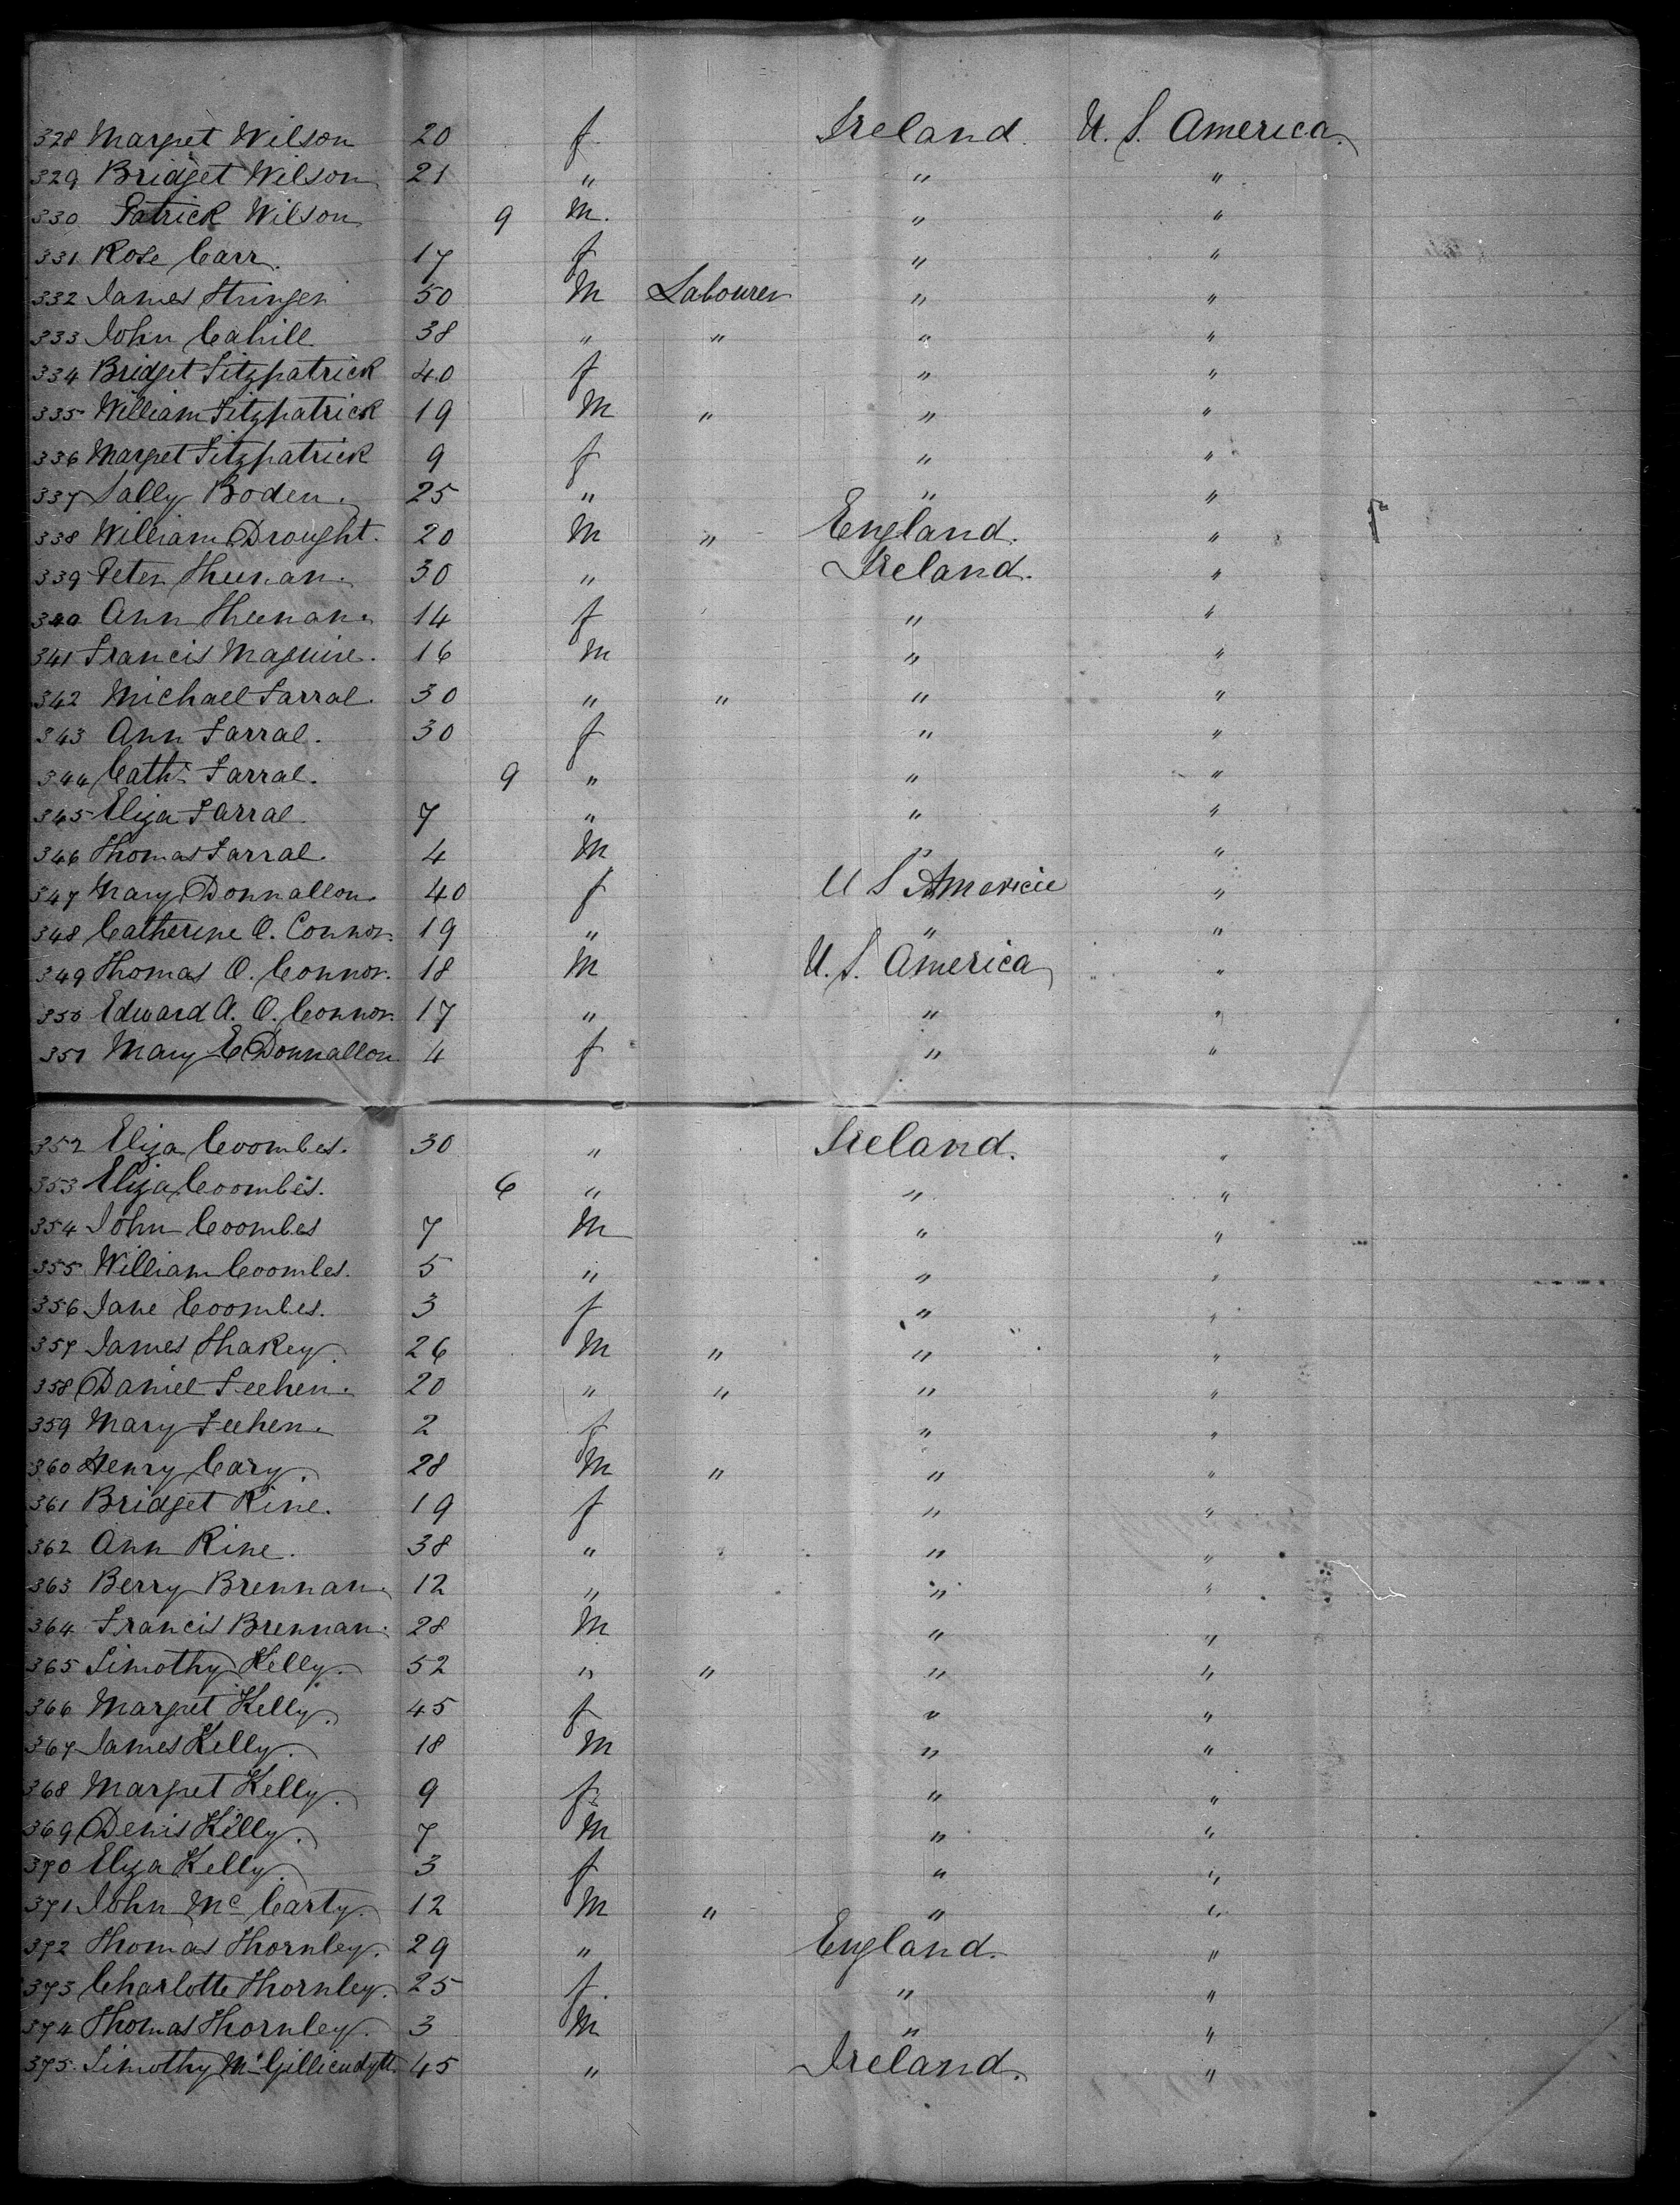 328 Margret Wilson 20 f Ireland. U. S. America.
329 Bridget Wilson 21 " " "
330 Patrick Wilson 9 M. " "
331 Rose Carr. 17 f " "
332 James Stringer 50 M Labourer " "
333 John Cahill 38 " " " "
334 Bridget Fitzpatrick 40 f " "
335 William Fitzpatrick 19 M " " "
336 Margret Fitzpatrick 9 f " "
337 Sally Boden. 25 " " "
338 William Drought. 20 M " England. "
339 Peter Sheenan. 30 " Ireland. "
340 Ann Sheenan. 14 f " "
341 Francis Maguire. 16 M " "
342 Michael Farral. 30 " " " "
343 Ann Farral. 30 f " "
344 Cath. Farral. 9 " " "
345 Eliza Farral. 7 " " "
346 Thomas Farral. 4 M " "
347 Mary Donnallon. 40 f U S America "
348 Catherine O. Connor. 19 " " "
349 Thomas O. Connor. 18 M U. S. America "
350 Edward A. O. Connor. 17 " " "
351 Mary E Donnallon 4 f " "
352 Eliza Coombes. 30 " Ireland. "
353 Eliza Coombes. 6 " " "
354 John Coombes 7 M " "
355 William Coombes. 5 " " "
356 Jane Coombes. 3 f " "
357 James Shakey. 26 M " " "
358 Daniel Feehen. 20 " " " "
359 Mary Feehen. 2 f " "
360 Henry Cary. 28 M " " "
361 Bridget Rine. 19 f " "
362 Ann Rine. 38 " " "
363 Berry Brennan. 12 " " "
364 Francis Brennan. 28 M " "
365 Timothy Kelly. 52 " " " "
366 Margret Kelly. 45 f " "
367 James Kelly. 18 M " "
368 Margret Kelly. 9 f " "
369 Denis Kelly. 7 M " "
370 Elyza Kelly. 3 f " "
371 John Mc Carty. 12 M " " "
372 Thomas Thornley. 29 " England. "
373 Charlotte Thornley. 25 f. " "
374 Thomas Thornley. 3 M " "
375. Timothy Mc 45 " Ireland. "